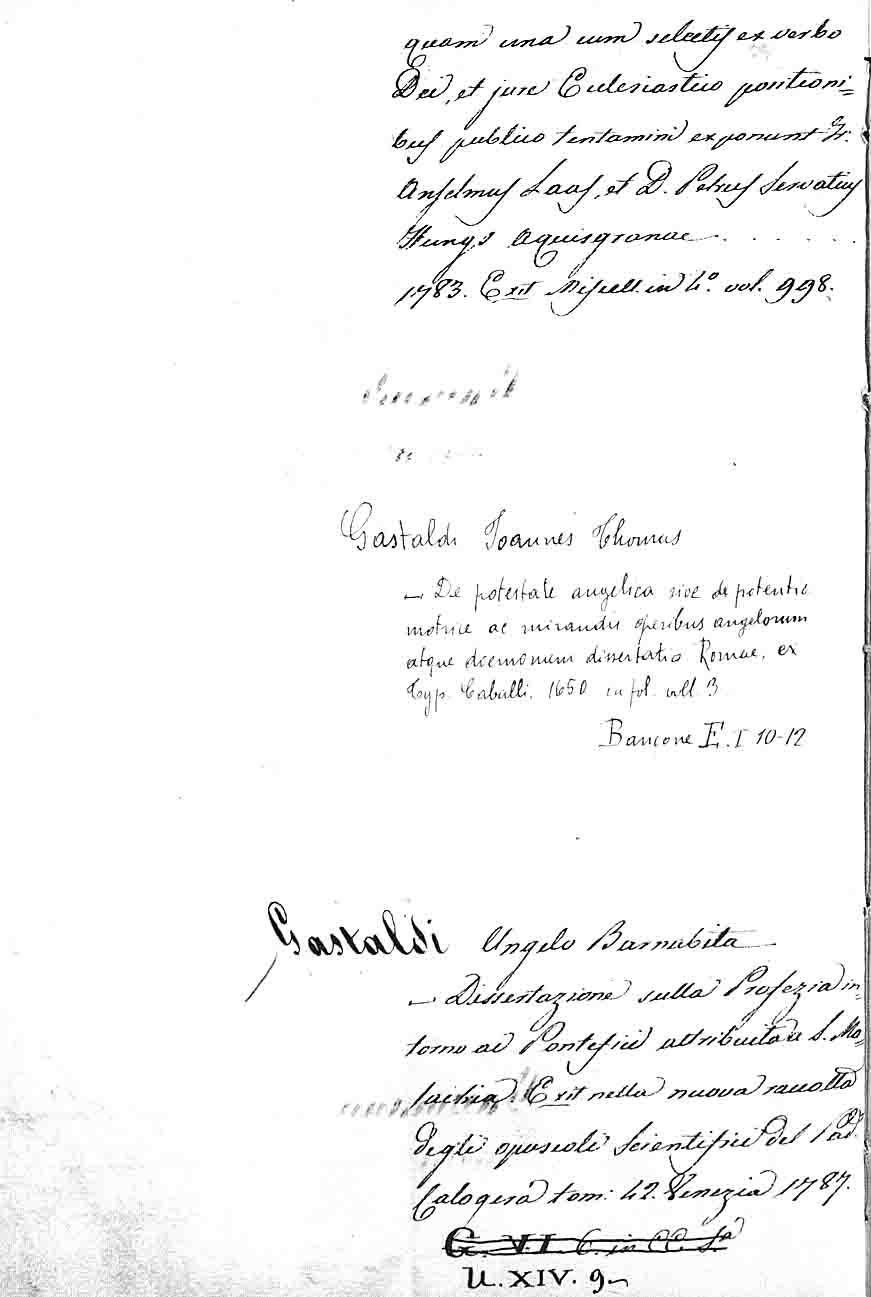 quam una cum selectis ex verbo
Dei, et jure Ecclesiastico positioni=
bus publico tentamini exponunt Fr.
Anselmus Laas, et D. Petrus Servatius
Aquisgranae . . . . . .
1783. Exit Miscell. in 4º. vol. 998.
Gastaldi Joannes Thomas
— De potestate angelica sive de potentia
motrice ac mirandis operibus angelorum
atque daemonum dissertatio Romae, ex
Typ. Caballi. 1650 in fol. voll 3
Bancone E. I 10-12
Gastaldi Angelo Barnabita
— Dissertazione sulla Profezia in-
torno ai Pontefici attribuita a S. Ma-
lachia. Exit nella nuova raccolta
degli opuscoli Scientifici del Pad.
Calogerà tom: 42. Venezia 1787.
G. VI. C. in CC.
U. XIV. 9